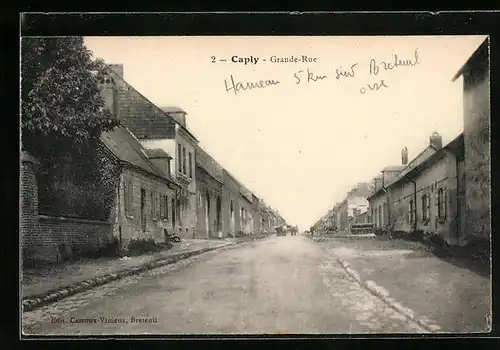 2 — Caply - Grande-Rue
Hameau 5 km sud Breteuil
oise
Edit. Carroux-Vimeux, Breteuil